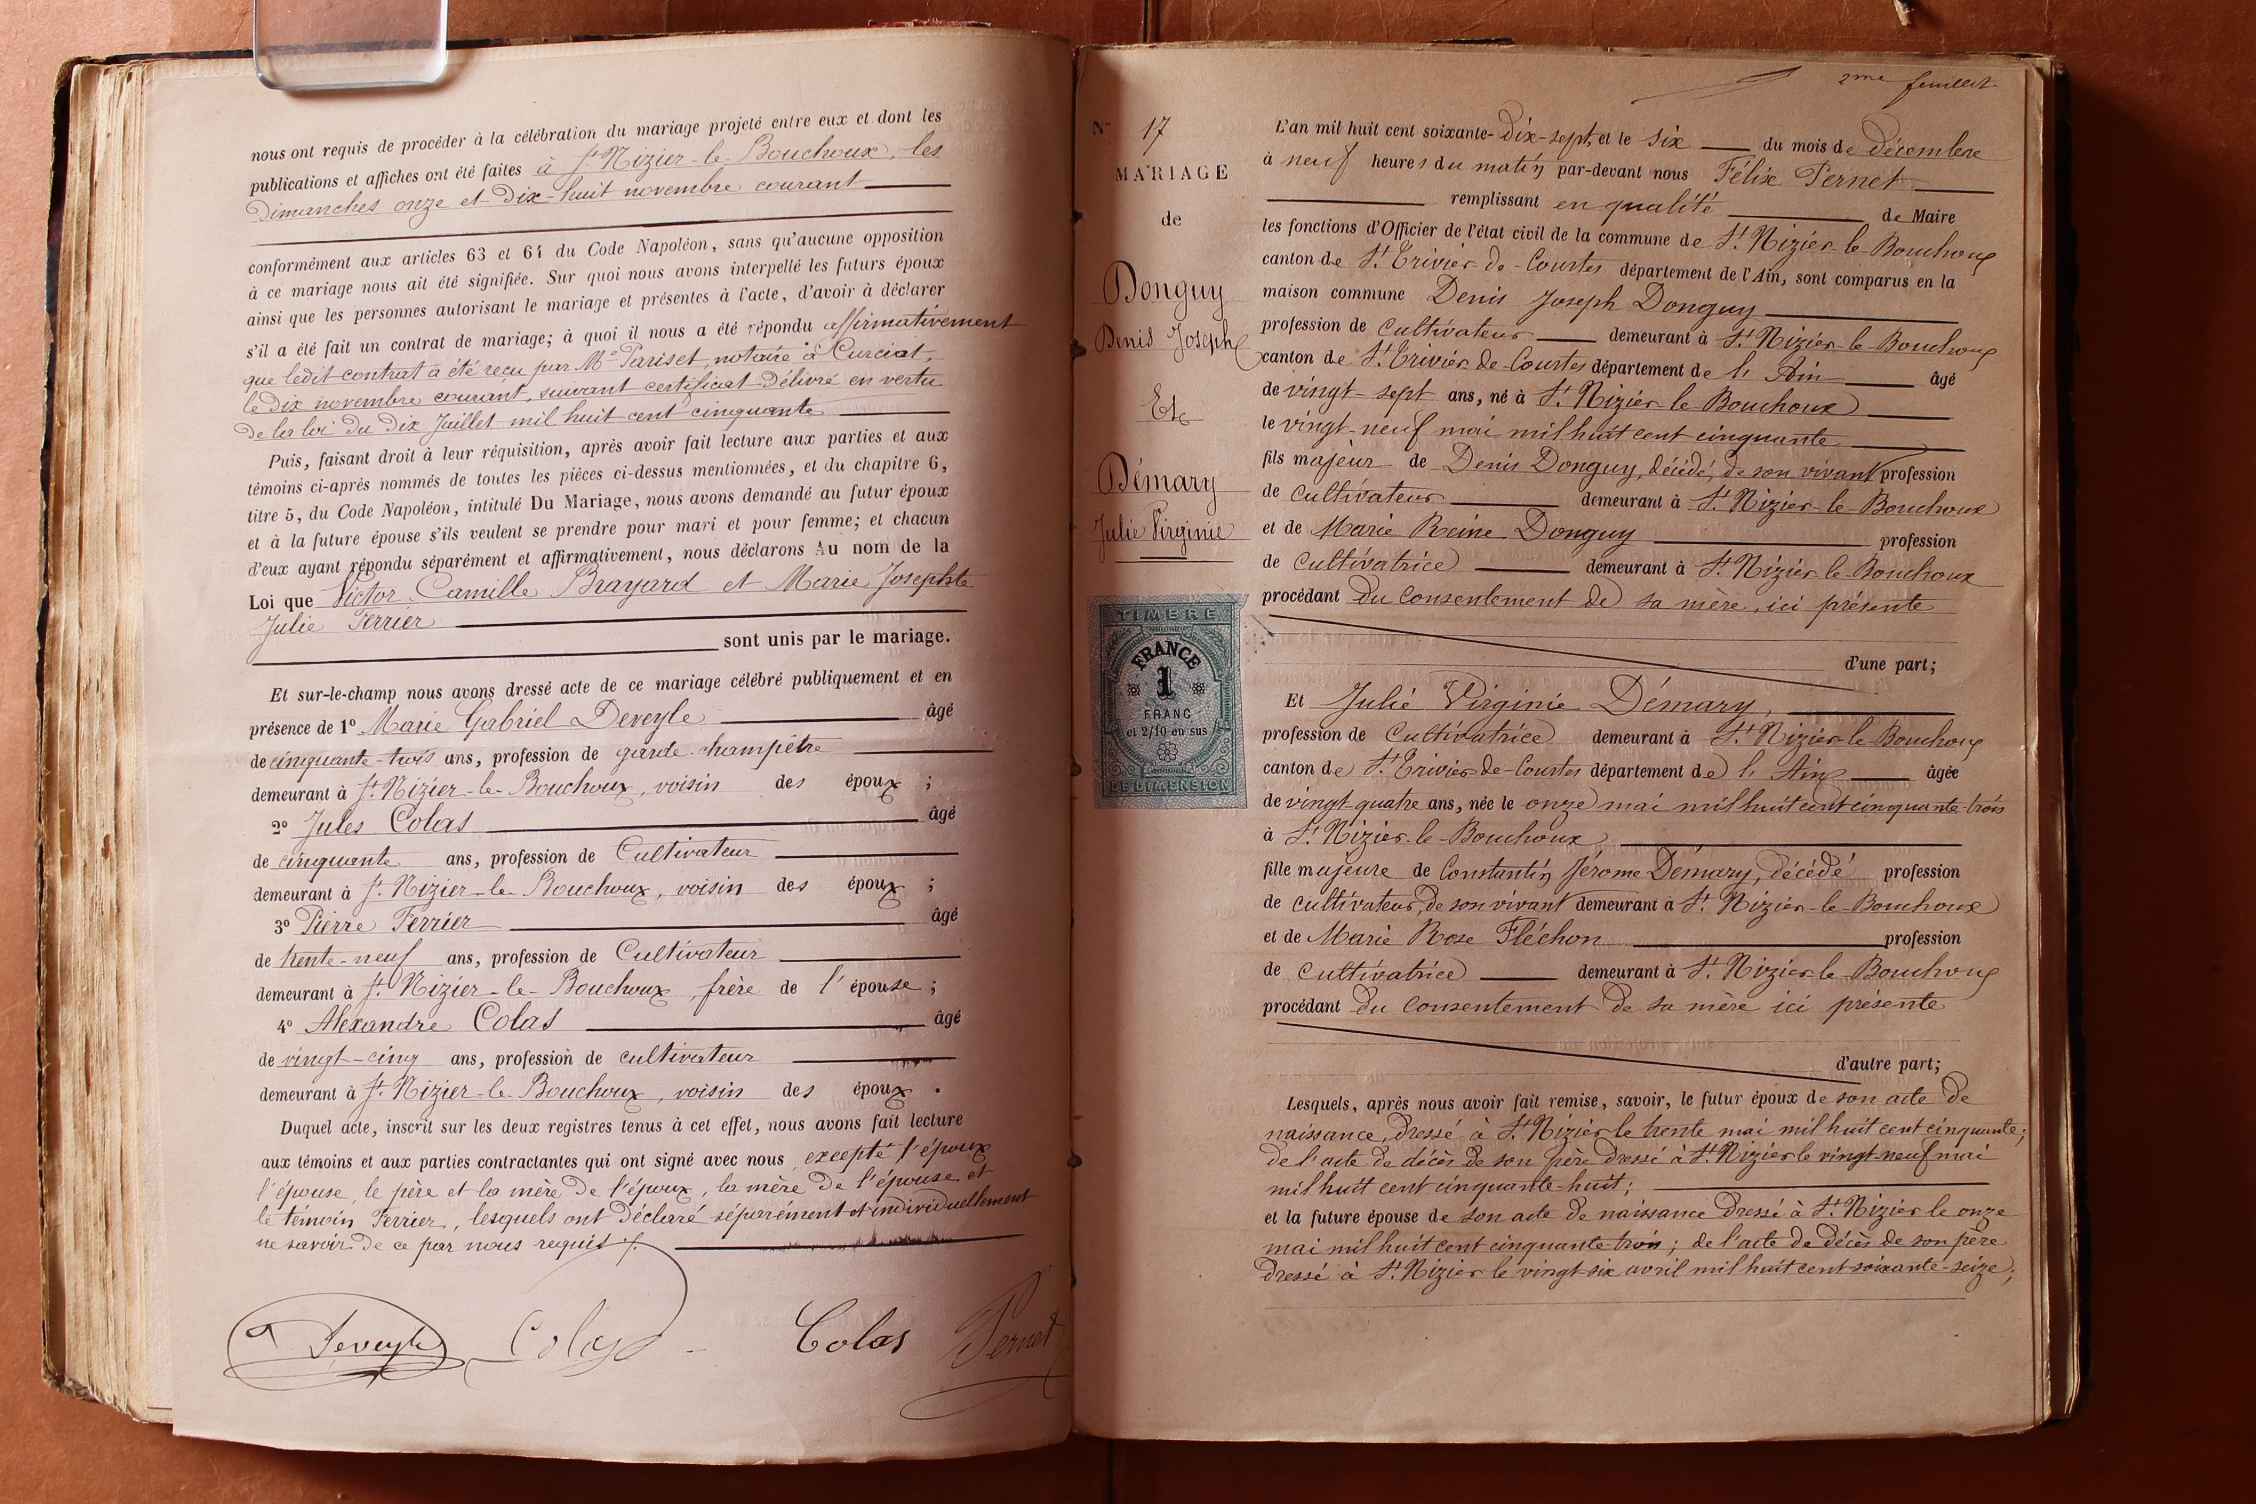 nous ont requis de procéder à la célébration du mariage projeté entre eux et dont les
publications et affiches ont été faites à St Nizier-le-Bouchoux, les
Dimanches onze et Dix-huit novembre courant
conformément aux articles 63 et 64 du Code Napoléon, sans qu'aucune opposition
à ce mariage nous ait été signifiée. Sur quoi nous avons interpellé les futurs époux
ainsi que les personnes autorisant le mariage et présentes à l'acte, d'avoir à déclarer
s'il a été fait un contrat de mariage; à quoi il nous a été répondu affirmativement
que ledit contrat a été reçu par Me Pariset, notaire à Curciat,
le Dix novembre courant, suivant certificat Délivré en vertu
De la loi du Dix Juillet mil huit cent cinquante
Puis, faisant droit à leur réquisition, après avoir fait lecture aux parties et aux
témoins ci-après nommés de toutes les pièces ci-dessus mentionnées, et du chapitre 6,
titre 5, du Code Napoléon, intitulé Du Mariage, nous avons demandé au futur époux
et à la future épouse s'ils veulent se prendre pour mari et pour femme; et chacun
d'eux ayant répondu séparément et affirmativement, nous déclarons Au nom de la
Loi que Victor Camille Brayard et Marie Josephte
Julie Ferrier
sont unis par le mariage.
Et sur-le-champ nous avons dressé acte de ce mariage célébré publiquement et en
présence de 1° Marie Gabriel Deveyle âgé
de cinquante-trois ans, profession de garde-champêtre
demeurant à St Nizier-le-Bouchoux, voisin des époux ;
2° Jules Colas âgé
de cinquante ans, profession de Cultivateur
demeurant à St Nizier-le-Bouchoux, voisin des époux ;
3° Pierre Ferrier âgé
de trente-neuf ans, profession de Cultivateur
demeurant à St Nizier-le-Bouchoux, frère de l'épouse ;
4° Alexandre Colas âgé
de vingt-cinq ans, profession de cultivateur
demeurant à St Nizier-le-Bouchoux, voisin des époux .
Duquel acte, inscrit sur les deux registres tenus à cet effet, nous avons fait lecture
aux témoins et aux parties contractantes qui ont signé avec nous excepté l'époux
l'épouse, le père et la mère De l'époux, la mère De l'épouse et
le témoin Ferrier, lesquels ont Déclaré séparément et individuellement
ne savoir De ce par nous requis ./.
Deveyle Colas Colas Pernet
2me feuillet
N° 17
MARIAGE
de
Donguy
Denis Joseph
Et
Démary
Julie Virginie
TIMBRE
FRANCE
1
FRANC
et 2/10 en sus
DE DIMENSION
L'an mil huit cent soixante-Dix-sept et le six du mois de Décembre
à neuf heures du matin par-devant nous Félix Pernet
remplissant en qualité de Maire
les fonctions d'Officier de l'état civil de la commune de St Nizier-le-Bouchoux
canton de St Trivier-de-Courtes département de l'Ain, sont comparus en la
maison commune Denis Joseph Donguy
profession de Cultivateur demeurant à St Nizier-le-Bouchoux
canton de St Trivier-de-Courtes département de l'Ain âgé
de vingt-sept ans, né à St Nizier-le-Bouchoux
le vingt-neuf mai mil huit cent cinquante
fils majeur de Denis Donguy, décédé, de son vivant profession
de cultivateur demeurant à St Nizier-le-Bouchoux
et de Marie Reine Donguy profession
de cultivatrice demeurant à St Nizier-le-Bouchoux
procédant Du consentement De sa mère, ici présente
d'une part;
Et Julie Virginie Démary,
profession de Cultivatrice demeurant à St Nizier-le-Bouchoux
canton de St Trivier-de-Courtes département de l'Ain âgée
de vingt-quatre ans, née le onze mai mil huit cent cinquante-trois
à St Nizier-le-Bouchoux,
fille majeure de Constantin Jérome Démary, décédé profession
de cultivateur, de son vivant demeurant à St Nizier-le-Bouchoux
et de Marie Rose Fléchon profession
de cultivatrice demeurant à St Nizier-le-Bouchoux
procédant Du consentement De sa mère ici présente
d'autre part;
Lesquels, après nous avoir fait remise, savoir, le futur époux de son acte De
naissance, Dressé à St Nizier le trente mai mil huit cent cinquante;
De l'acte De décès De son père Dressé à St Nizier le vingt-neuf mai
mil huit cent cinquante-huit;
et la future épouse de son acte De naissance Dressé à St Nizier le onze
mai mil huit cent cinquante-trois; de l'acte De Décès De son père
Dressé à St Nizier le vingt-six avril mil huit cent soixante-seize;